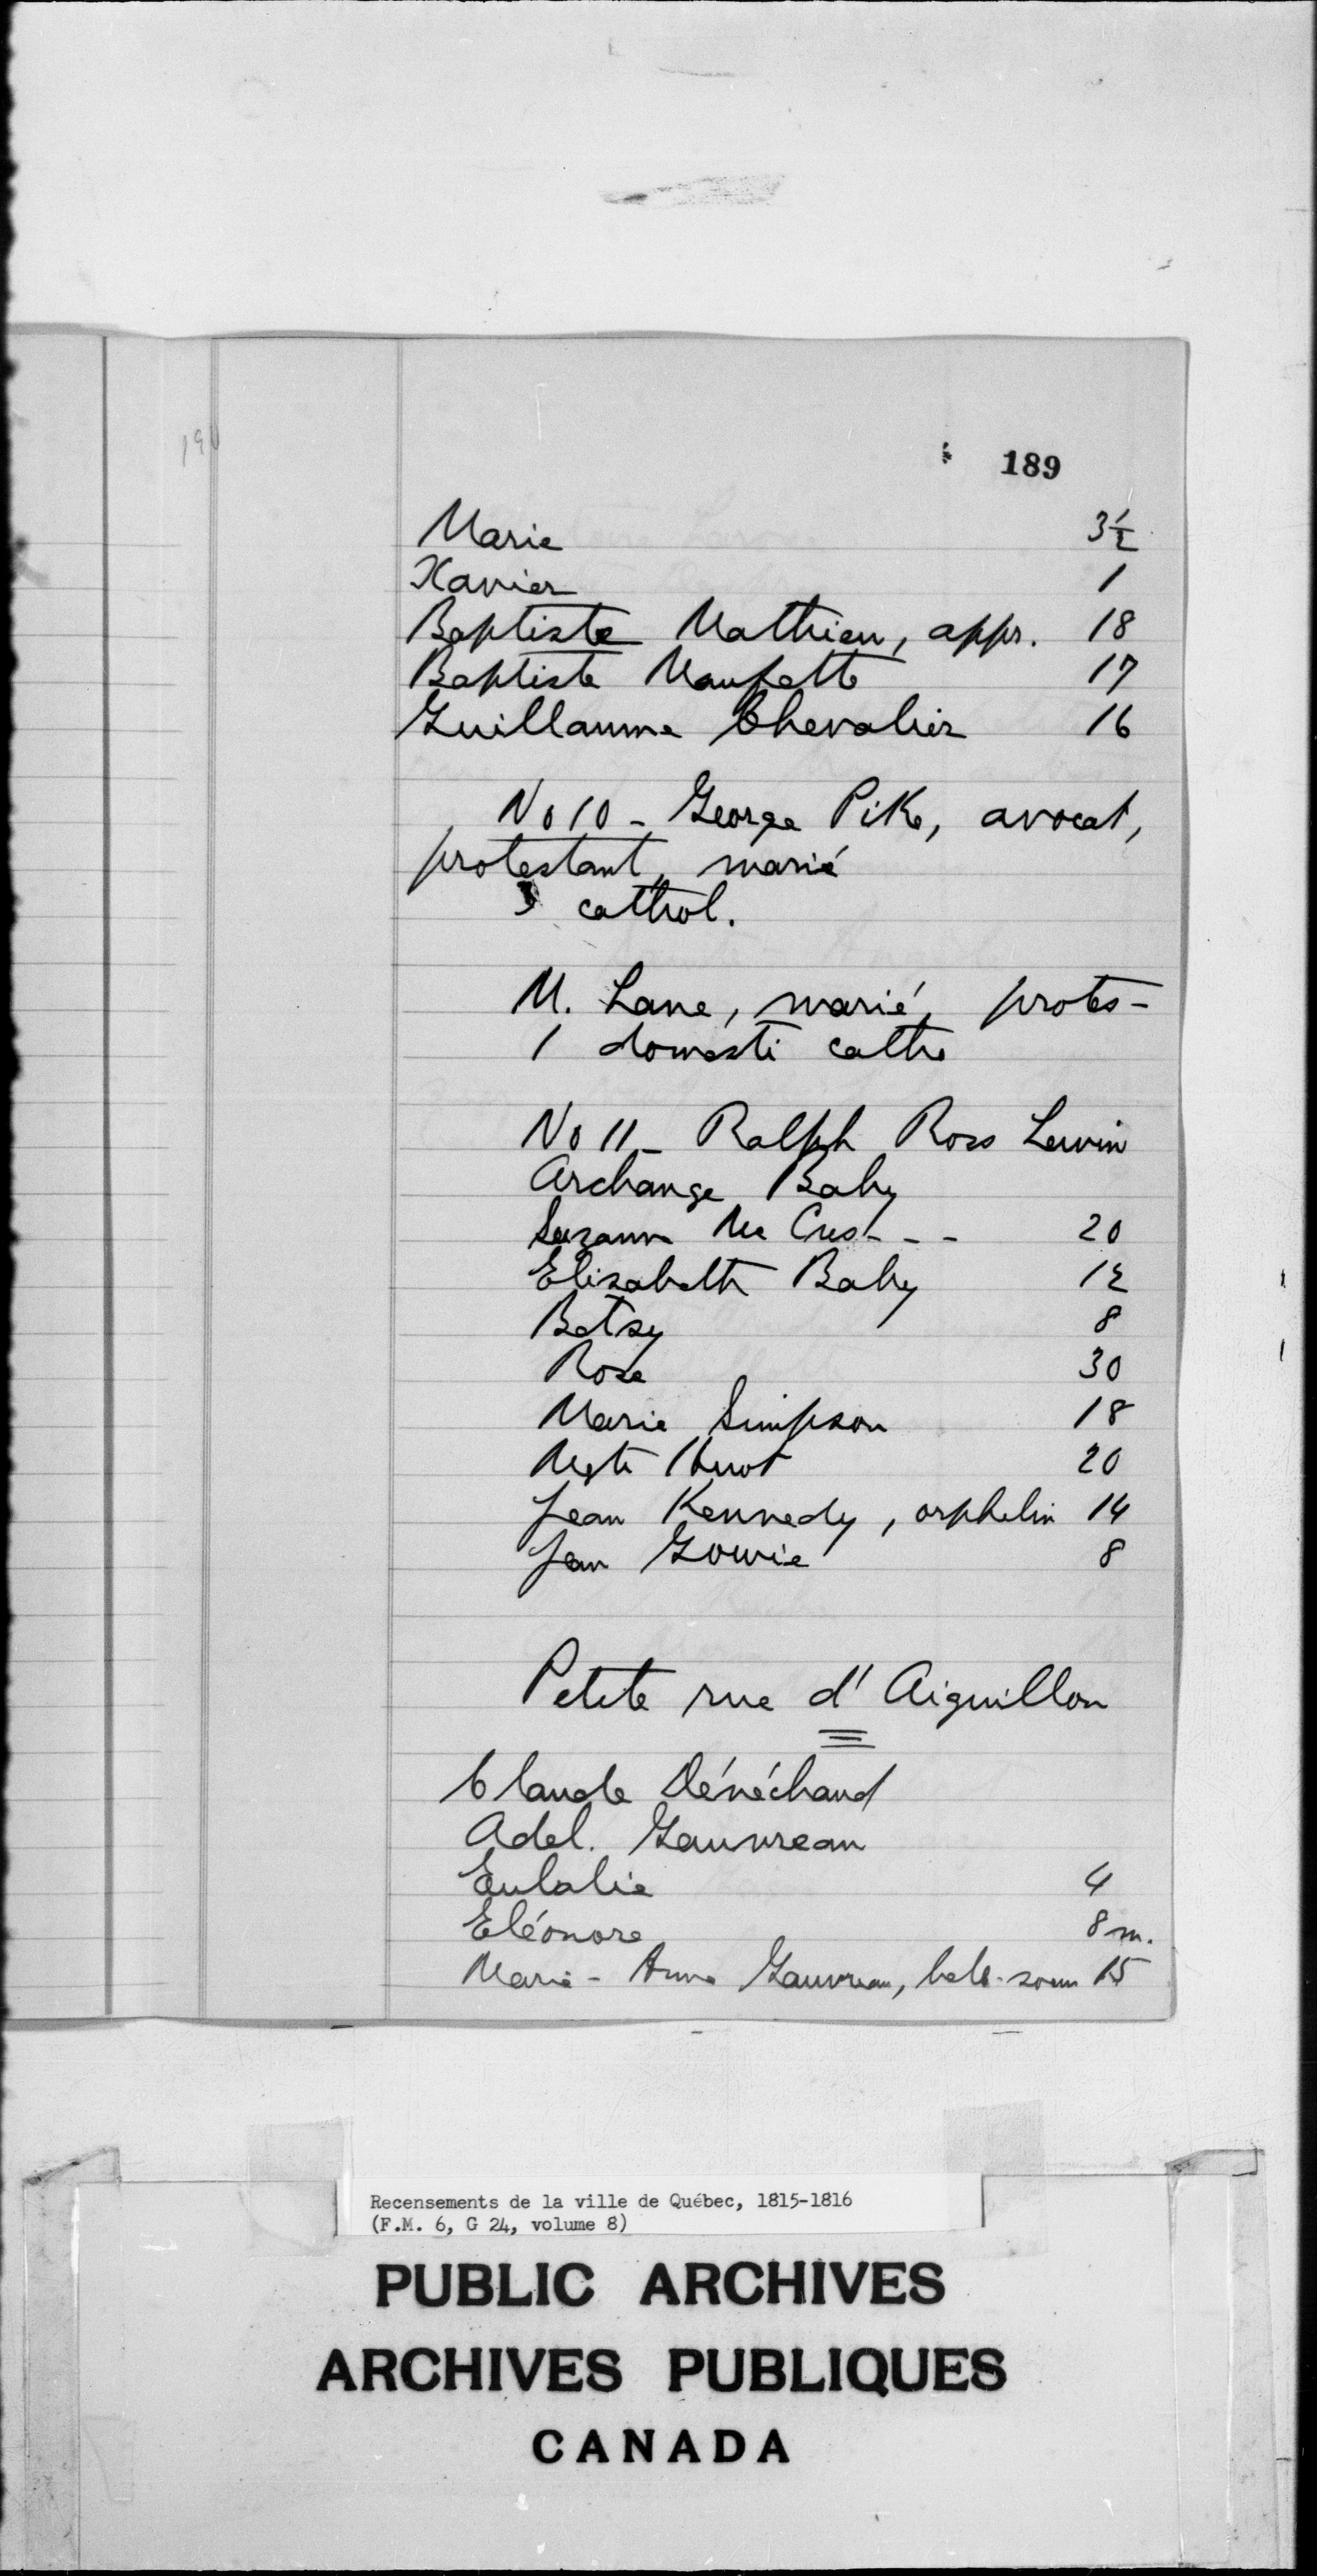 190
189
Marie 3½
Xavier 1
Baptiste Mathieu, appr. 18
Baptiste Maupette 17
Guillaume Chevalier 16
No 10 - George Pike, avocat,
protestant, marié
3 cathol.
M. Lane, marié, protes-
1 domesti catho
No 11 - Ralph Ross Lewin
Archange Baby
Suzanne Mc Cres - - - 20
Elizabeth Baby 12
Betsy 8
Rose 30
Marie Simpson 18
Mgte Huot 20
Jean Kennedy, orphelin 14
Jean Gowie 8
Petite rue d'Aiguillon
Claude Dénéchaud
Adel. Gauvreau
Eulalie 4
Eléonore 8 m.
Marie-Anne Gauvreau, belle-soeur 15
Recensements de la ville de Québec, 1815-1816
(F.M. 6, G 24, volume 8)
PUBLIC ARCHIVES
ARCHIVES PUBLIQUES
CANADA